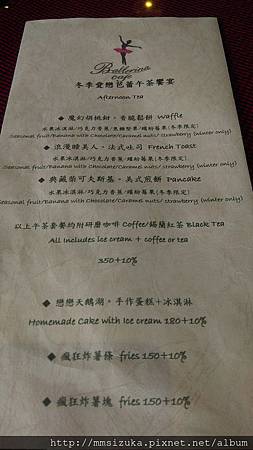 Ballerina
cafe
冬季愛戀芭蕾午茶饗宴
Afternoon Tea
◆ 魔幻胡桃鉗。香脆鬆餅 Waffle
水果冰淇淋/巧克力香蕉/焦糖堅果/繽紛莓果(冬季限定)
Seasonal fruit/Banana with Chocolate/Caramel nuts/ strawberry (winter only)
◆ 浪漫睡美人。法式吐司 French Toast
水果冰淇淋/巧克力香蕉/焦糖堅果/繽紛莓果(冬季限定)
Seasonal fruit/Banana with Chocolate/Caramel nuts/ strawberry (winter only)
◆ 典藏柴可夫斯基。美式煎餅 Pancake
水果冰淇淋/巧克力香蕉/焦糖堅果/繽紛莓果(冬季限定)
Seasonal fruit/Banana with Chocolate/Caramel nuts/ strawberry (winter only)
以上午茶套餐均附研磨咖啡 Coffee/錫蘭紅茶 Black Tea
All Includes ice cream + coffee or tea
350+10%
◆ 戀戀天鵝湖。手作蛋糕+冰淇淋
Homemade Cake with Ice cream 180+10%
◆ 瘋狂炸薯條 fries 150+10%
◆ 瘋狂炸薯塊 fries 150+10%
http://mmsizuka.pixnet.net/album